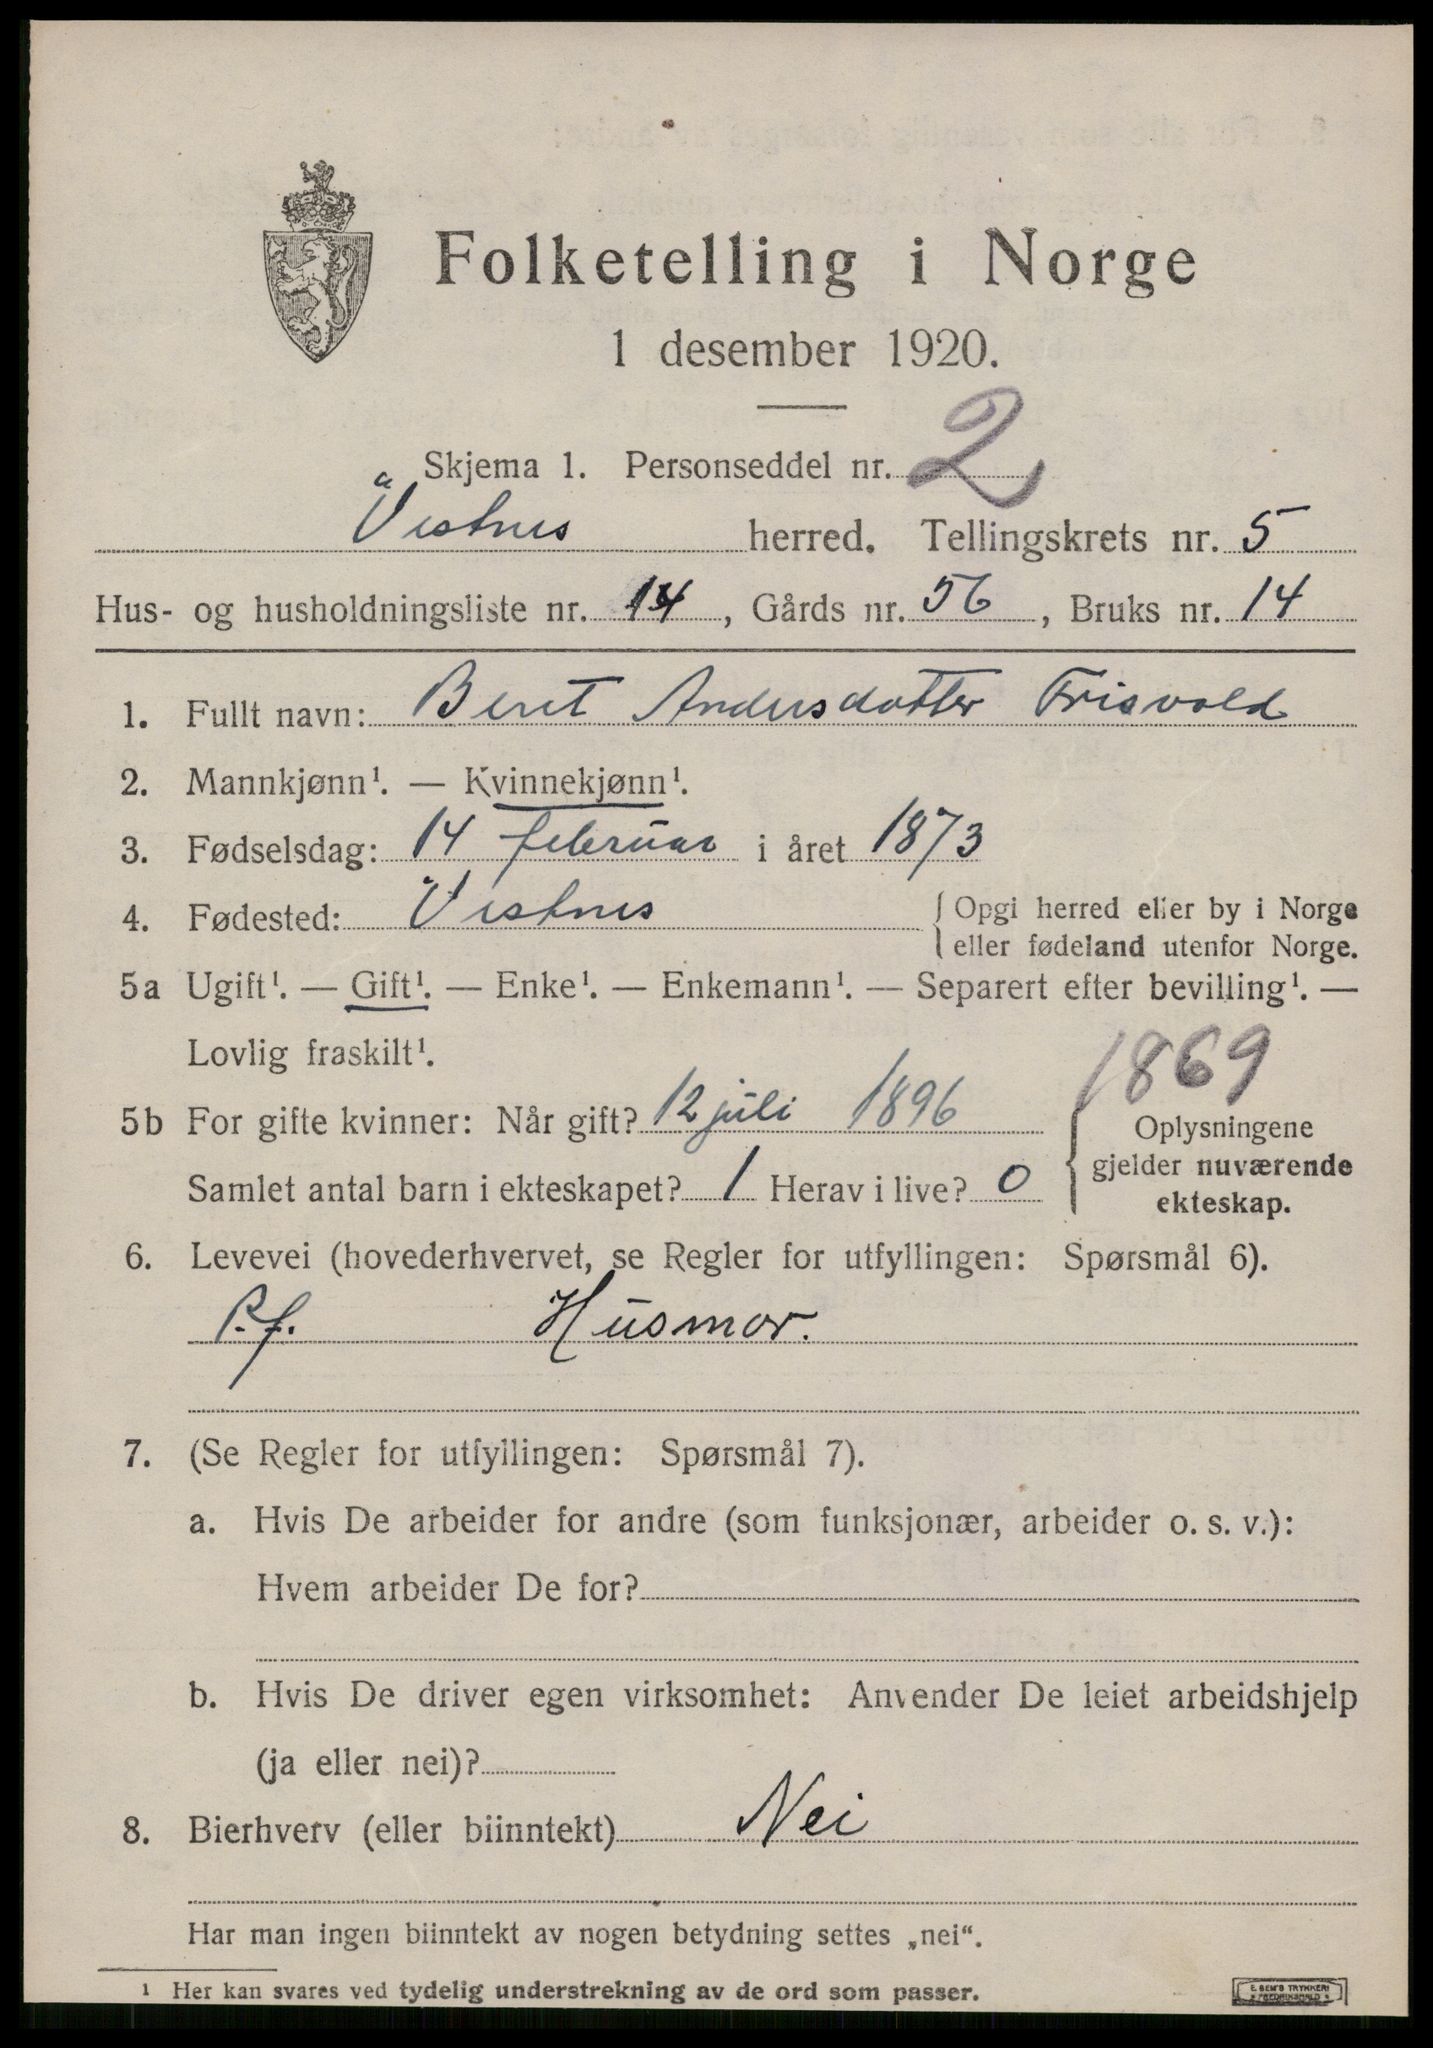 Folketelling i Norge
1 desember 1920.
Skjema 1. Personseddel nr. 2
Vestnes herred. Tellingskrets nr. 5
Hus- og husholdningsliste nr. 14, Gårds nr. 56, Bruks nr. 14
1. Fullt navn: Beret Andersdotter Frisvold
2. Mannkjønn¹. — Kvinnekjønn¹.
3. Fødselsdag: 14 februar i året 1873
4. Fødested: Vestnes { Opgi herred eller by i Norge
eller fødeland utenfor Norge.
5a Ugift¹. — Gift¹. — Enke¹. — Enkemann¹. — Separert efter bevilling¹. —
Lovlig fraskilt¹.
1869
5b For gifte kvinner: Når gift? 12 juli 1896
Samlet antal barn i ekteskapet? 1 Herav i live? 0
{ Oplysningene
gjelder nuværende
ekteskap.
6. Levevei (hovederhvervet, se Regler for utfyllingen: Spørsmål 6).
P.f. Husmor.
7. (Se Regler for utfyllingen: Spørsmål 7).
a. Hvis De arbeider for andre (som funksjonær, arbeider o. s. v.):
Hvem arbeider De for?
b. Hvis De driver egen virksomhet: Anvender De leiet arbeidshjelp
(ja eller nei)?
8. Bierhverv (eller biinntekt) Nei
Har man ingen biinntekt av nogen betydning settes „nei“.
¹ Her kan svares ved tydelig understrekning av de ord som passer.
E. SEM'S TRYKKERI
FREDRIKSHALD